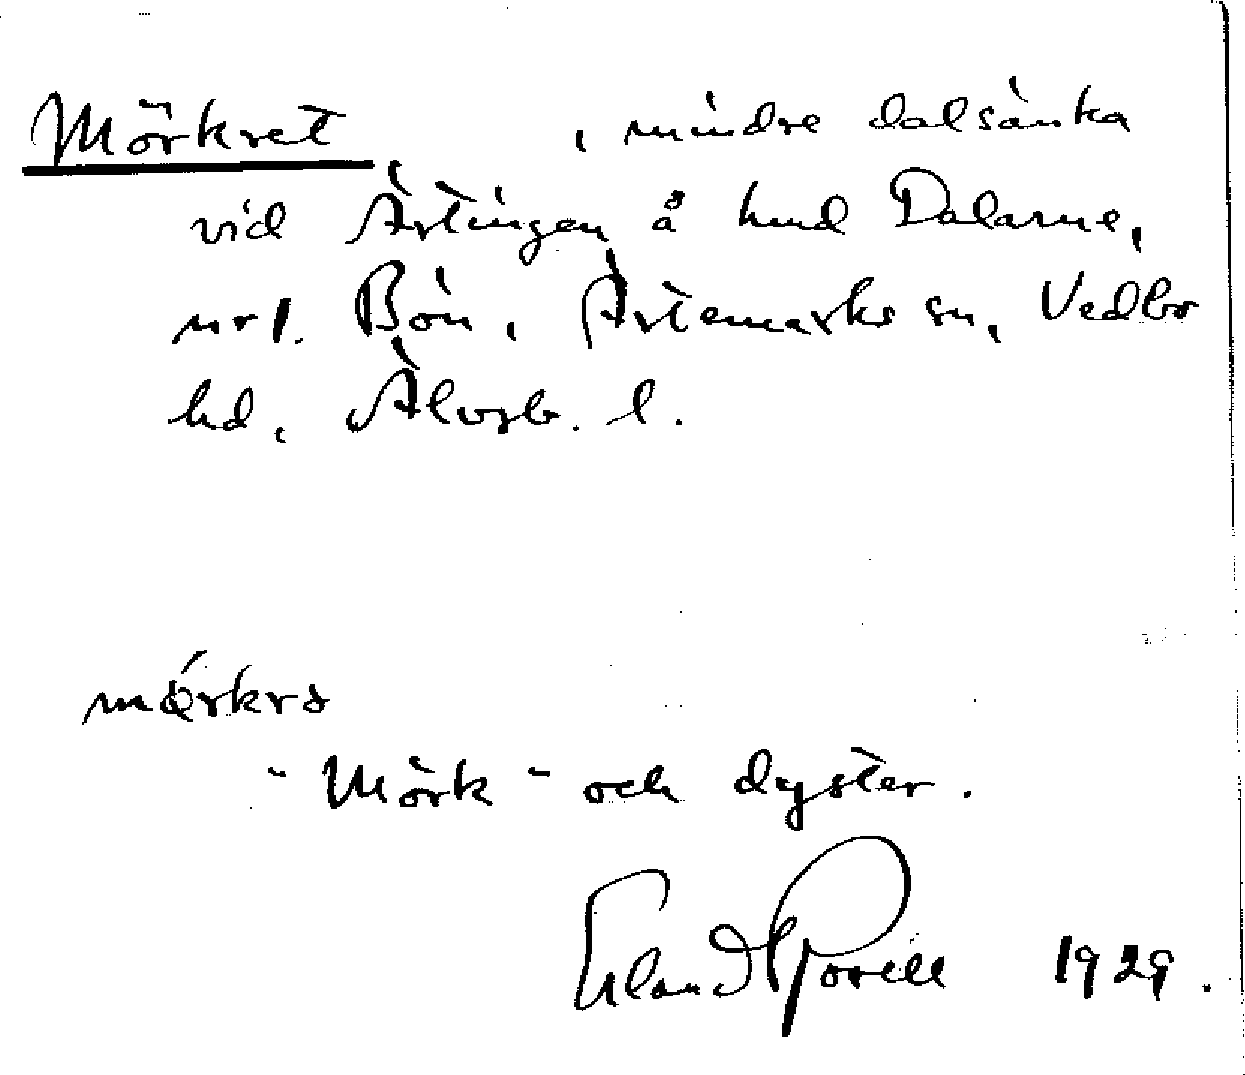 Mörkret, mindre dalsänka
vid Ärtingen å hmd Dalarne,
nr 1. Bön, Ärtemarks sn, Vedbo
hd, Älvsb. l.
mǿrkrə
- Mörk - och dyster.
Erland 1929.